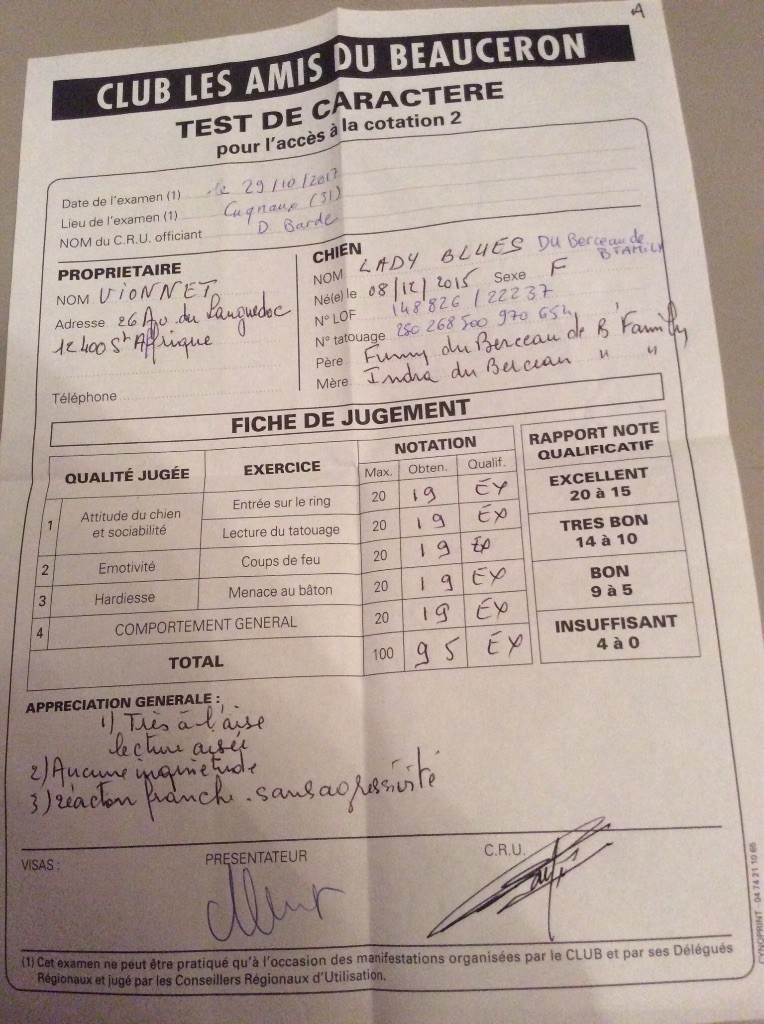 A
CLUB LES AMIS DU BEAUCERON
TEST DE CARACTERE
pour l'accès à la cotation 2
Date de l'examen (1) le 29/10/2017
Lieu de l'examen (1) Cugnaux (31)
NOM du C.R.U. officiant D Barde
PROPRIETAIRE
NOM VIONNET
Adresse 26 Av. du Languedoc
12400 St Affrique
Téléphone
CHIEN
NOM LADY BLUES Du Berceau de B'FAMILY
Né(e) le 08/12/2015 Sexe F
N° LOF 148826/22237
N° tatouage 250 268 500 970 654
Père Funny du Berceau de B'Family
Mère Indra du Berceau " "
FICHE DE JUGEMENT
QUALITÉ JUGÉE EXERCICE NOTATION
Max. Obten. Qualif.
1 Attitude du chien et sociabilité Entrée sur le ring 20 19 EX
Lecture du tatouage 20 19 EX
2 Emotivité Coups de feu 20 19 EX
3 Hardiesse Menace au bâton 20 19 EX
4 COMPORTEMENT GENERAL 20 19 EX
TOTAL 100 95 EX
RAPPORT NOTE
QUALIFICATIF
EXCELLENT
20 à 15
TRES BON
14 à 10
BON
9 à 5
INSUFFISANT
4 à 0
APPRECIATION GENERALE :
1) Très à l'aise
lecture aisée
2) Aucune inquietude
3) réaction franche. sans agressivité
VISAS : PRESENTATEUR C.R.U.
(1) Cet examen ne peut être pratiqué qu'à l'occasion des manifestations organisées par le CLUB et par ses Délégués
Régionaux et jugé par les Conseillers Régionaux d'Utilisation.
CYNOPRINT - 04 74 21 10 65